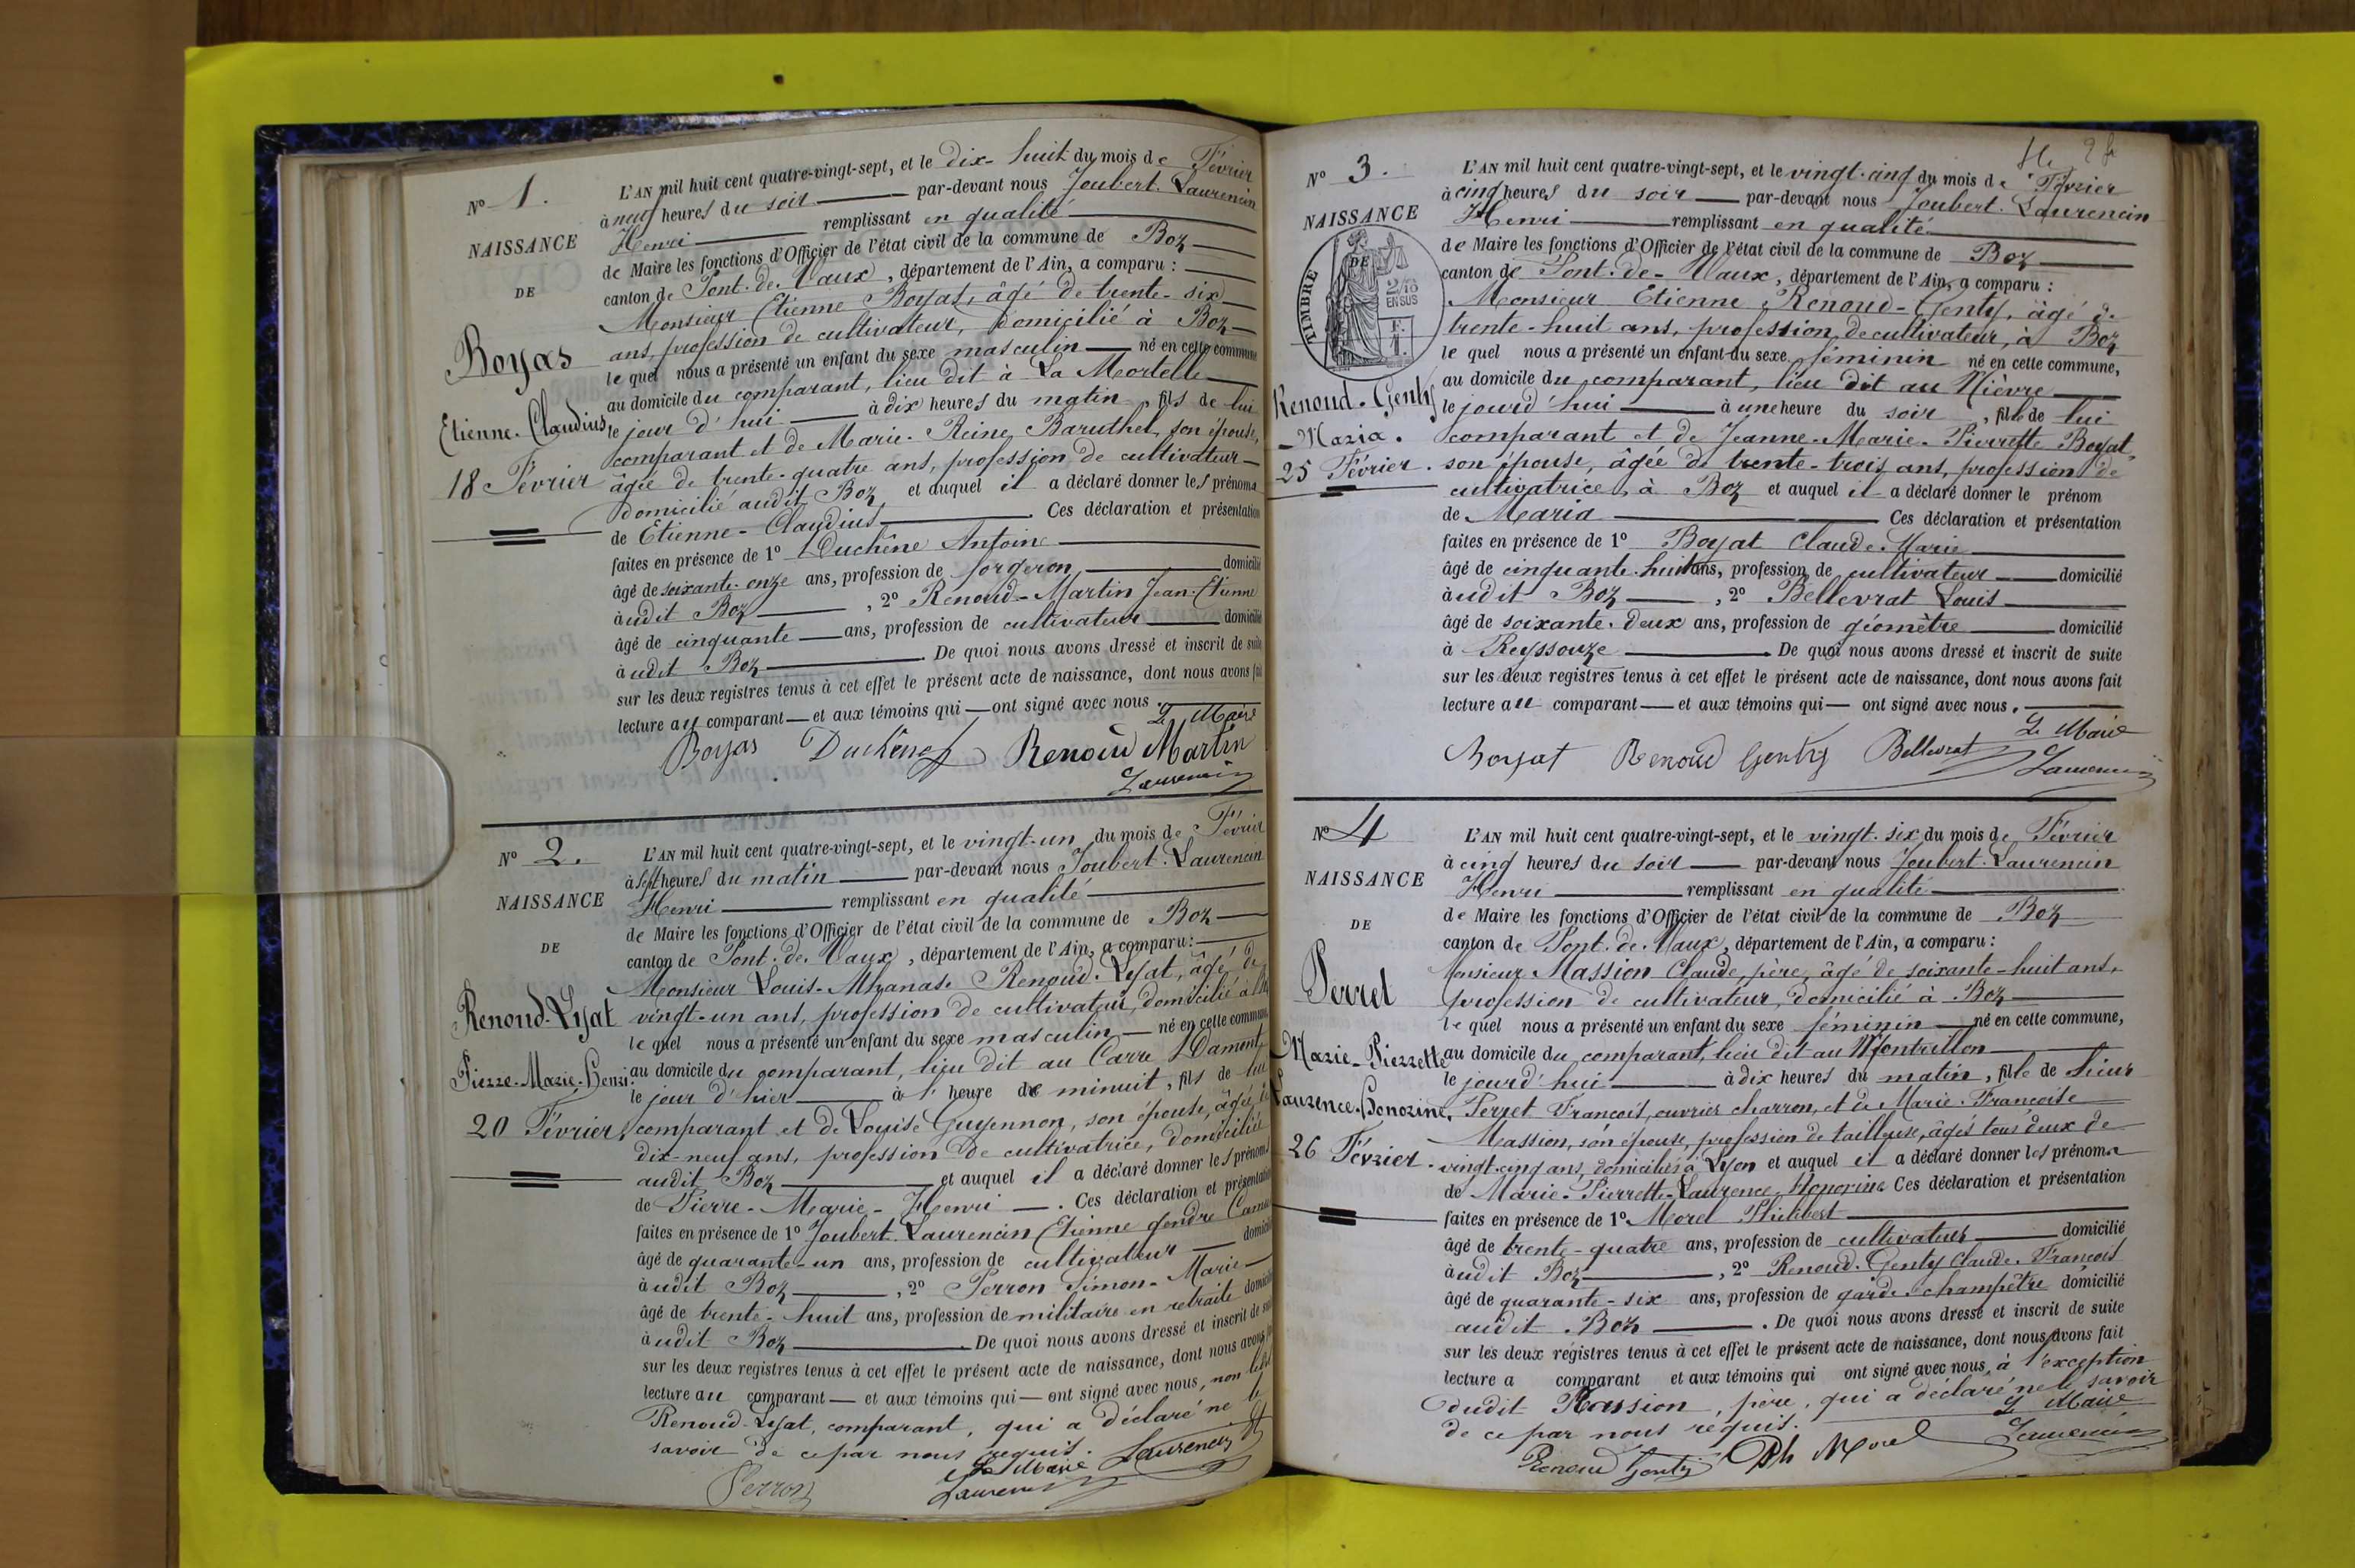 N° 1.
NAISSANCE
DE
Boyas
Etienne-Claudius,
18 Février
L'AN mil huit cent quatre-vingt-sept, et le dix-huit du mois de Février
à neuf heures du soir par-devant nous Joubert-Laurencin
Henri remplissant en qualité
de Maire les fonctions d'Officier de l'état civil de la commune de Boz
canton de Pont-de-Vaux, département de l'Ain, a comparu :
Monsieur Etienne Boyas, âgé de trente-six
ans, profession de cultivateur, domicilié à Boz
lequel nous a présenté un enfant du sexe masculin né en cette commune
au domicile du comparant, lieu dit à La Mortelle
le jour d'hui à dix heures du matin, fils de lui
comparant et de Marie-Reine Baruthel, son épouse,
âgée de trente-quatre ans, profession de cultivateur
domicilié audit Boz et auquel il a déclaré donner les prénoms
de Etienne-Claudius. Ces déclaration et présentation
faites en présence de 1° Duchêne Antoine
âgé de soixante-onze ans, profession de forgeron, domicilié
à udit Boz, 2° Renoud-Martin Jean-Etienne
âgé de cinquante ans, profession de cultivateur domicilié
à udit Boz. De quoi nous avons dressé et inscrit de suite
sur les deux registres tenus à cet effet le présent acte de naissance, dont nous avons fait
lecture au comparant et aux témoins qui ont signé avec nous.
Le Maire
Boyas Duchêne Renoud Martin
Laurencin
N° 2.
NAISSANCE
DE
Renoud-Lyat
Pierre-Marie-Henri.
20 Février.
L'AN mil huit cent quatre-vingt-sept, et le vingt-un du mois de Février
à sept heures du matin par-devant nous Joubert-Laurencin
Henri remplissant en qualité
de Maire les fonctions d'Officier de l'état civil de la commune de Boz
canton de Pont-de-Vaux, département de l'Ain, a comparu :
Monsieur Louis-Athanase Renoud-Lyat, âgé de
vingt-un ans, profession de cultivateur, domicilié à Boz
lequel nous a présenté un enfant du sexe masculin né en cette commune
au domicile du comparant, lieu dit au Carre Dament,
le jour d'hier à l'heure de minuit, fils de lui
comparant et de Louise Guyennon, son épouse, âgée de
dix-neuf ans, profession de cultivatrice, domiciliée
audit Boz et auquel il a déclaré donner les prénoms
de Pierre-Marie-Henri. Ces déclaration et présentation
faites en présence de 1° Joubert-Laurencin Etienne gendre
âgé de quarante-un ans, profession de cultivateur domicilié
à udit Boz, 2° Perron Simon-Marie
âgé de trente-huit ans, profession de militaire en retraite domicilié
à udit Boz. De quoi nous avons dressé et inscrit de suite
sur les deux registres tenus à cet effet le présent acte de naissance, dont nous avons fait
lecture au comparant et aux témoins qui ont signé avec nous, non ledit
Renoud-Lyat, comparant, qui a déclaré ne le
savoir de ce par nous requis. Laurencin
Le Maire
Perron Laurencin
N° 3.
NAISSANCE
DE
TIMBRE
2/10
EN SUS
F.
1.
Renoud-Genty
Maria.
25 Février.
L'AN mil huit cent quatre-vingt-sept, et le vingt-cinq du mois de Février
à cinq heures du soir par-devant nous Joubert-Laurencin
Henri remplissant en qualité
de Maire les fonctions d'Officier de l'état civil de la commune de Boz
canton de Pont-de-Vaux, département de l'Ain, a comparu :
Monsieur Etienne Renoud-Genty, âgé de
trente-huit ans, profession de cultivateur, à Boz
lequel nous a présenté un enfant du sexe féminin né en cette commune,
au domicile du comparant, lieu dit au Nièvre
le jourd'hui à une heure du soir, fille de lui
comparant et de Jeanne-Marie-Pierrette Boyat,
son épouse, âgée de trente-trois ans, profession de
cultivatrice, à Boz et auquel il a déclaré donner le prénom
de Maria Ces déclaration et présentation
faites en présence de 1° Boyat Claude-Marie
âgé de cinquante-huit ans, profession de cultivateur domicilié
à udit Boz, 2° Bellevrat Louis
âgé de soixante-deux ans, profession de géomètre domicilié
à Reyssouze. De quoi nous avons dressé et inscrit de suite
sur les deux registres tenus à cet effet le présent acte de naissance, dont nous avons fait
lecture au comparant et aux témoins qui ont signé avec nous.
Le Maire
Boyat Renoud Genty Bellevrat Laurencin
N° 4
NAISSANCE
DE
Perret
Marie-Pierrette
Laurence-Honorine.
26 Février.
L'AN mil huit cent quatre-vingt-sept, et le vingt-six du mois de Février
à cinq heures du soir par-devant nous Joubert-Laurencin
Henri remplissant en qualité
de Maire les fonctions d'Officier de l'état civil de la commune de Boz
canton de Pont-de-Vaux, département de l'Ain, a comparu :
Monsieur Massion Claude, père, âgé de soixante-huit ans,
profession de cultivateur, domicilié à Boz
lequel nous a présenté un enfant du sexe féminin né en cette commune,
au domicile du comparant, lieu dit au Montrillon
le jourd'hui à dix heures du matin, fille de Sieur
Perret François, ouvrier charron, et de Marie-Françoise
Massion, son épouse, profession de tailleuse, âgés tous deux de
vingt-cinq ans, domiciliés à Lyon et auquel il a déclaré donner les prénoms
de Marie-Pierrette-Laurence Honorine Ces déclaration et présentation
faites en présence de 1° Morel Philibert
âgé de trente-quatre ans, profession de cultivateur domicilié
à udit Boz, 2° Renoud-Genty Claude-François
âgé de quarante-six ans, profession de garde-champêtre domicilié
audit Boz. De quoi nous avons dressé et inscrit de suite
sur les deux régistres tenus à cet effet le présent acte de naissance, dont nous avons fait
lecture a comparant et aux témoins qui ont signé avec nous, à l'exception
dudit Massion, père, qui a déclaré ne le savoir
de ce par nous requis. Le Maire
Renoud Genty Ph Morel Laurencin